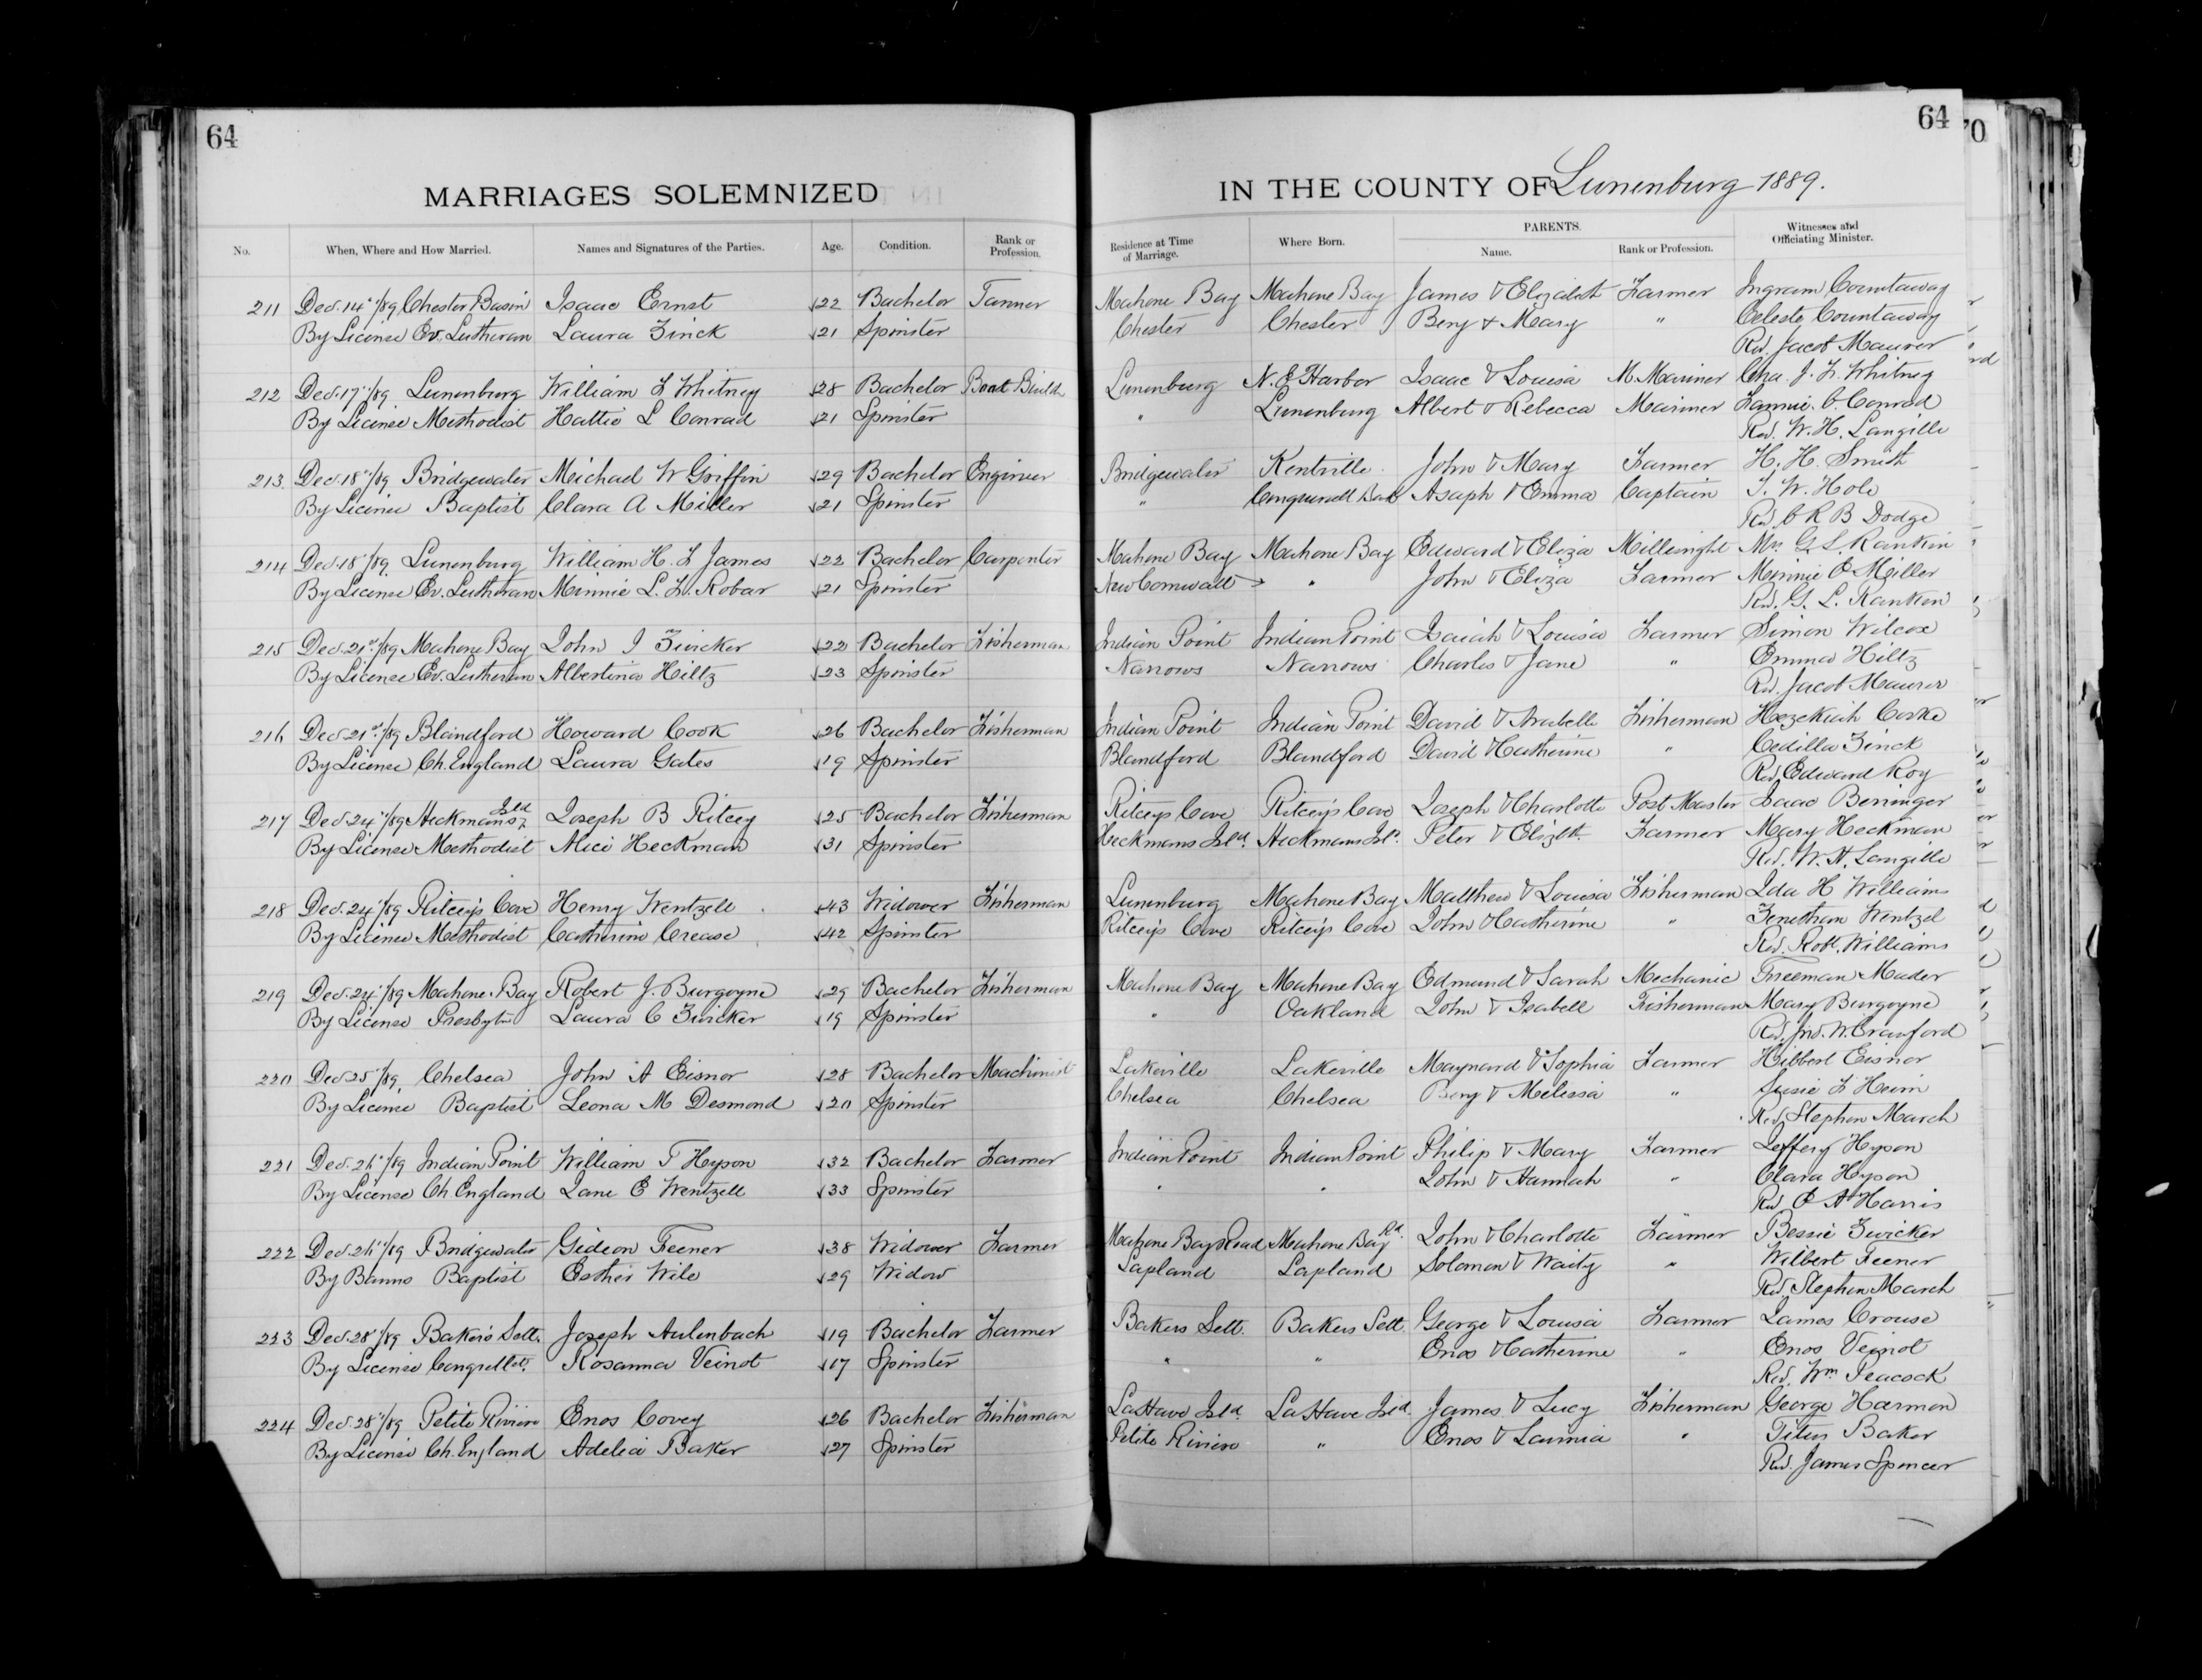 64
MARRIAGES SOLEMNIZED
No. When, Where and How Married. Names and Signatures of the Parties. Age. Condition. Rank or Profession.
211 Dec. 14"/89 Chester Basin Isaac Ernst 22 Bachelor Tanner
By License Ev. Lutheran Laura Zinck 21 Spinster
212 Dec. 17"/89 Lunenburg William F Whitney 28 Bachelor Boat Builder
By License Methodist Hattie L Conrad 21 Spinster
213 Dec. 18"/89 Bridgewater Michael W Griffin 29 Bachelor Engineer
By License Baptist Clara A Miller 21 Spinster
214 Dec. 18"/89 Lunenburg William H. F James 22 Bachelor Carpenter
By License Ev. Lutheran Minnie L. F. Robar 21 Spinster
215 Dec. 21st/89 Mahone Bay John I Zwicker 22 Bachelor Fisherman
By License Ev. Lutheran Albertina Hiltz 23 Spinster
216 Dec 21st/89 Blandford Howard Cook 26 Bachelor Fisherman
By License Ch. England Laura Gates 19 Spinster
217 Dec. 24"/89 Heckmans Isld Joseph B Ritcey 25 Bachelor Fisherman
By License Methodist Alice Heckman 31 Spinster
218 Dec. 24"/89 Ritceys Cove Henry Wentzell 43 Widower Fisherman
By License Methodist Catherine Crease 42 Spinster
219 Dec. 24"/89 Mahone Bay Robert J. Burgoyne 29 Bachelor Fisherman
By License Presbytn Laura C Zwicker 19 Spinster
220 Dec 25"/89 Chelsea John A Eisnor 28 Bachelor Machinist
By License Baptist Leona M Desmond 20 Spinster
221 Dec. 26"/89 Indian Point William T Hyson 32 Bachelor Farmer
By License Ch England Jane E Wentzell 33 Spinster
222 Dec. 26"/89 Bridgewater Gideon Feener 38 Widower Farmer
By Banns Baptist Esther Wile 29 Widow
223 Dec. 28"/89 Bakers Sett. Joseph Aulenbach 19 Bachelor Farmer
By License Rosanna Veinot 17 Spinster
224 Dec. 28"/89 Petite Riviere Enos Covey 26 Bachelor Fisherman
By License Ch. England Adelia Baker 27 Spinster
64
70
IN THE COUNTY OF Lunenburg 1889.
Residence at Time of Marriage. Where Born. PARENTS. Name. Rank or Profession. Witnesses and Officiating Minister.
Mahone Bay Mahone Bay James & Elizabeth Farmer Ingram Countaway
Chester Chester Benj & Mary " Celeste Countaway
Rev. Jacob Maurer
Lunenburg N. E Harbor Isaac & Louisa M. Mariner Cha. J. F. Whitney
" Lunenburg Albert & Rebecca Mariner Fannie. C. Conrad
Rev. W. H. Langille
Bridgewater Kentville John & Mary Farmer H. H. Smith
" Asaph & Emma Captain T. W. Hole
Rev. C R B Dodge
Mahone Bay Mahone Bay Edward & Eliza Millwright Mrs G. L. Rankin
New Cornwall " John & Eliza Farmer Minnie E Miller
Rev. G. L. Rankin
Indian Point Indian Point Isaiah & Louisa Farmer Simon Wilcox
Narrows Narrows Charles & Jane " Emma Hiltz
Rev. Jacob Maurer
Indian Point Indian Point David & Arabelle Fisherman Hezekiah
Blandford Blandford David & Catherine " Cedilla Zinck
Rev. Edward Roy
Ritceys Cove Ritceys Cove Joseph & Charlotte Post Master Isaac Berringer
Heckmans Isld. Heckmans Isl. Peter & Elizth Farmer Mary Heckman
Rev. W. H. Langille
Lunenburg Mahone Bay Matthew & Louisa Fisherman Ida H Williams
Ritceys Cove Ritceys Cove John & Catherine " Wentzel
Rev. Robt. Williams
Mahone Bay Mahone Bay Edmund & Sarah Mechanic Freeman Mader
" Oakland John & Isabell Fisherman Mary Burgoyne
Rev. Jno. W. Crawford
Lakeville Lakeville Maynard & Sophia Farmer Hibbert Eisnor
Chelsea Chelsea Benj & Melissa " Susie F
Rev. Stephen March
Indian Point Indian Point Philip & Mary Farmer Jeffery Hyson
" " John & Hannah " Clara Hyson
Rev E A Harris
Mahone Bay Road Mahone Bay Rd. John & Charlotte Farmer Bessie Zwicker
Lapland Lapland Solomon & Waity " Wilbert Feener
Rev. Stephen March
Bakers Sett. Bakers Sett. George & Louisa Farmer James Crouse
" " Enos & Catherine " Enos Veinot
Rev. Wm Peacock
LaHave Isld. LaHave Isld. James & Lucy Fisherman George Harmon
Petite Riviere " Enos & Lavinia " Titus Baker
Rev. James Spencer